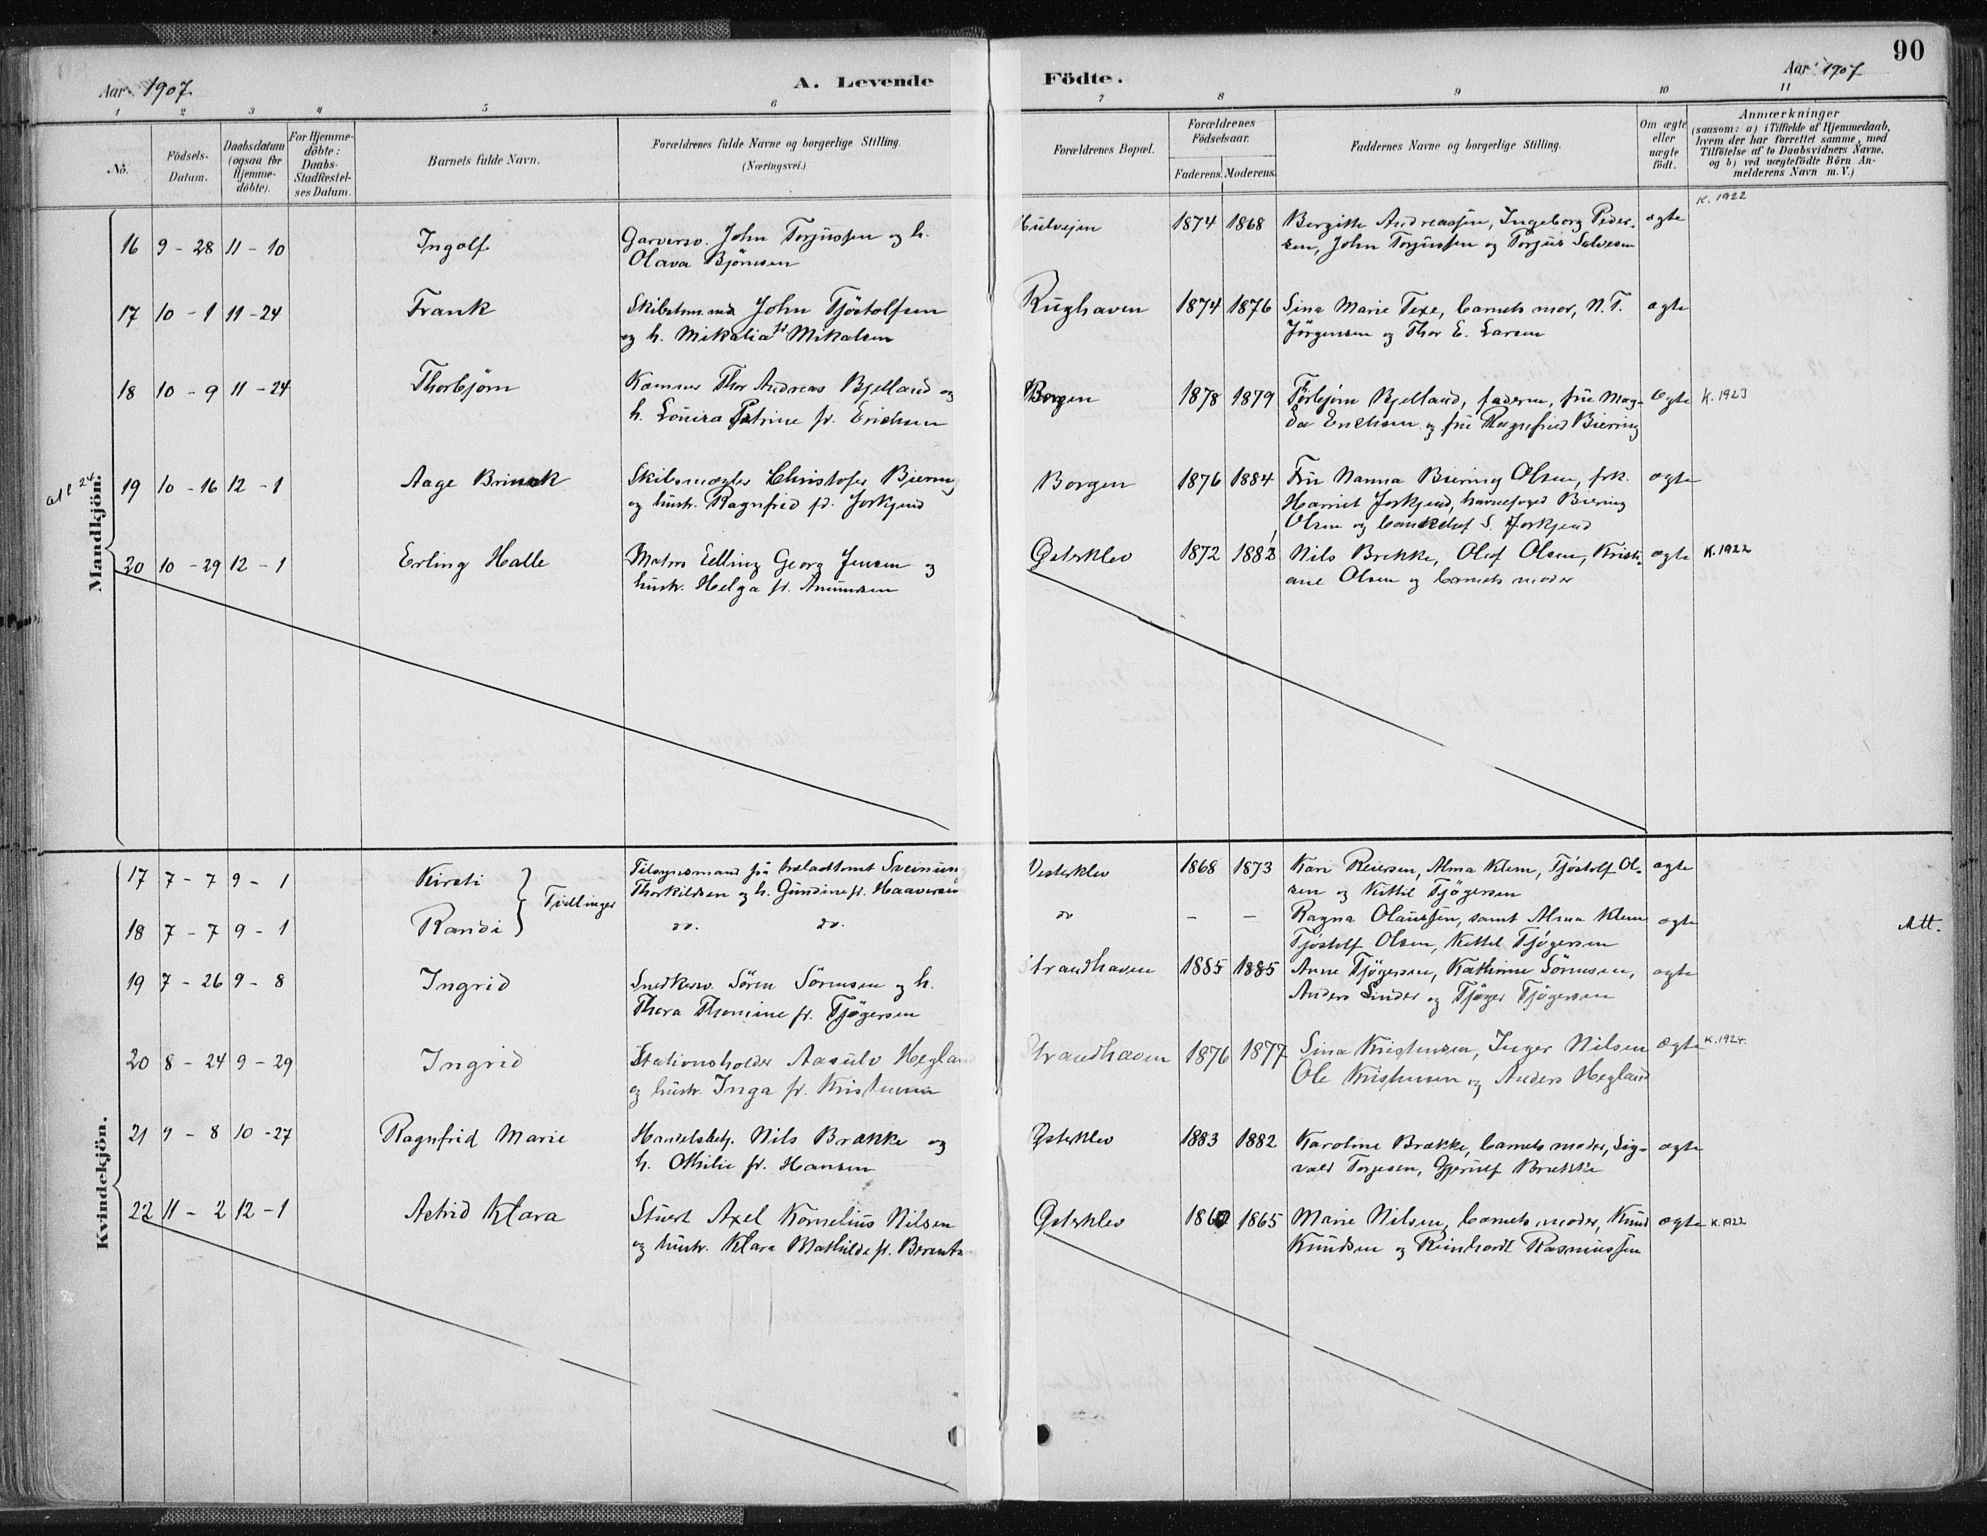 90
Aar 1907.
A. Levende
Födte.
Aar 1907
1 2 3 4 5 6 7 8 9 10 11
No.
Födsels-
Datum.
Daabsdatum
(ogsaa for
Hjemme-
döbte).
For Hjemme-
döbte:
Daabs-
Stadfæstel-
ses Datum.
Barnets fulde Navn.
Forældrenes fulde Navne og borgerlige Stilling.
(Næringsvei.)
Forældrenes Bopæl.
Forældrenes
Födselsaar.
Faderens. Moderens.
Faddernes Navne og borgerlige Stilling.
Om ægte
eller
uægte
født.
Anmærkninger
(saasom: a) i Tilfælde af Hjemmedaab,
hvem der har forrettet samme, med
Tilföielse af to Daabsvidners Navne,
og b) ved uægtefödte Börn An-
melderens Navn m. V.)
Mandkjön.
K. 1922
16 9-28 11-10 Ingolf Garversv. John Torjussen og h. 1874 1868 Bergitte Andreassen, Ingeborg Peder- ægte
Olava Bjørnsen sen, John Torjussen og Torjus Salvesen
17 10-1 11-24 Frank John Tjöstolfsen Rughaven 1874 1876 Sina Marie Texe, barnets mor, N.T. ægte
og h. Mikalia Mikalsen Jörgensen og Thor E. Larsen
18 10-9 11-24 Thorbjørn Thor Andreas Bjelland og Borgen 1878 1879 Torbjørn Bjelland, faderen, fru Mag- ægte K. 1923
h. Lovisa Petrine f. Erichsen da Erichsen og fru Ragnfried Biering
19 10-16 12-1 Aage Brinck Skibsmægler Christofer Biering Borgen 1876 1884 Fru Nanna Biering Olsen, frk. ægte
og hustr. Ragnfred f. Jorkjend Harriet Jorkjend, havnefoged Biering
Olsen og S. Jorkjend
20 10-29 12-1 Erling Halle Matros Edling Georg Jensen og Østerklev 1872 1883 Nils Brekke, Olof Olsen, Kristi- ægte K. 1922
hustr. Helga f. Amundsen ane Olsen og barnets moder
Kvindekjön.
17 7-7 9-1 Kirsti Tvillinger Tilsynsmand Vesterklev 1868 1873 Kari Reiersen, Alma Klem, Tjöstolf Ol- ægte
Thorkildsen og h. Gundine f. Haaversen sen og Kittil Tjögersen
18 7-7 9-1 Randi do. do. do - - Ragna Olaussen, samt Alma Klem ægte Att.
Tjöstolf Olsen, Kittil Tjögersen
19 7-26 9-8 Ingrid Snedkersv. Sören Sörensen og h. Strandhaven 1885 1885 Anne Tjögersen, Kathrine Sörensen, ægte
Thora Thomine f. Tjögersen Anders Linder og Tjöger Tjögersen
20 8-24 9-29 Ingrid Stationsholder Aasulv Hegland Strandhaven 1876 1877 Sina Kristensen, Inger Nilsen ægte K. 1924.
og hustr. Inga f. Kristensen Ole Kristensen og Anders Hegland
21 9-8 10-27 Ragnfrid Marie Handelsbetj. Nils Brække og Østerklev 1883 1882 Karoline Brække, barnets moder, Sig- ægte
h. Othilie f. Hansen vald Torjesen, Gjerulf Brække
22 11-2 12-1 Astrid Klara Stuert Axel Kornelius Nilsen Østerklev 1865 Marie Nilsen, barnets moder, Knud ægte K. 1922
og hustr. Klara Mathilde f. Knudsen og Reinhardt Rasmussen